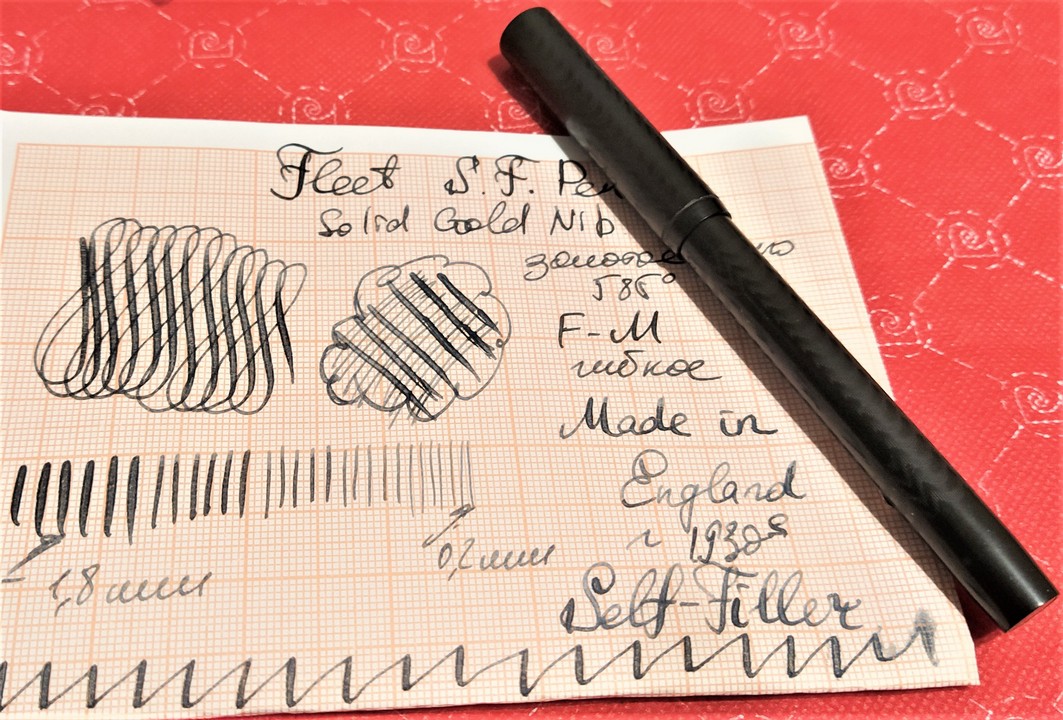 Fleet S.F. Pen
Solid Gold Nib
585°
F-M
гибкое
Made in
England
~ 1930s
Self-Filler
1,8 мм
0,2 мм